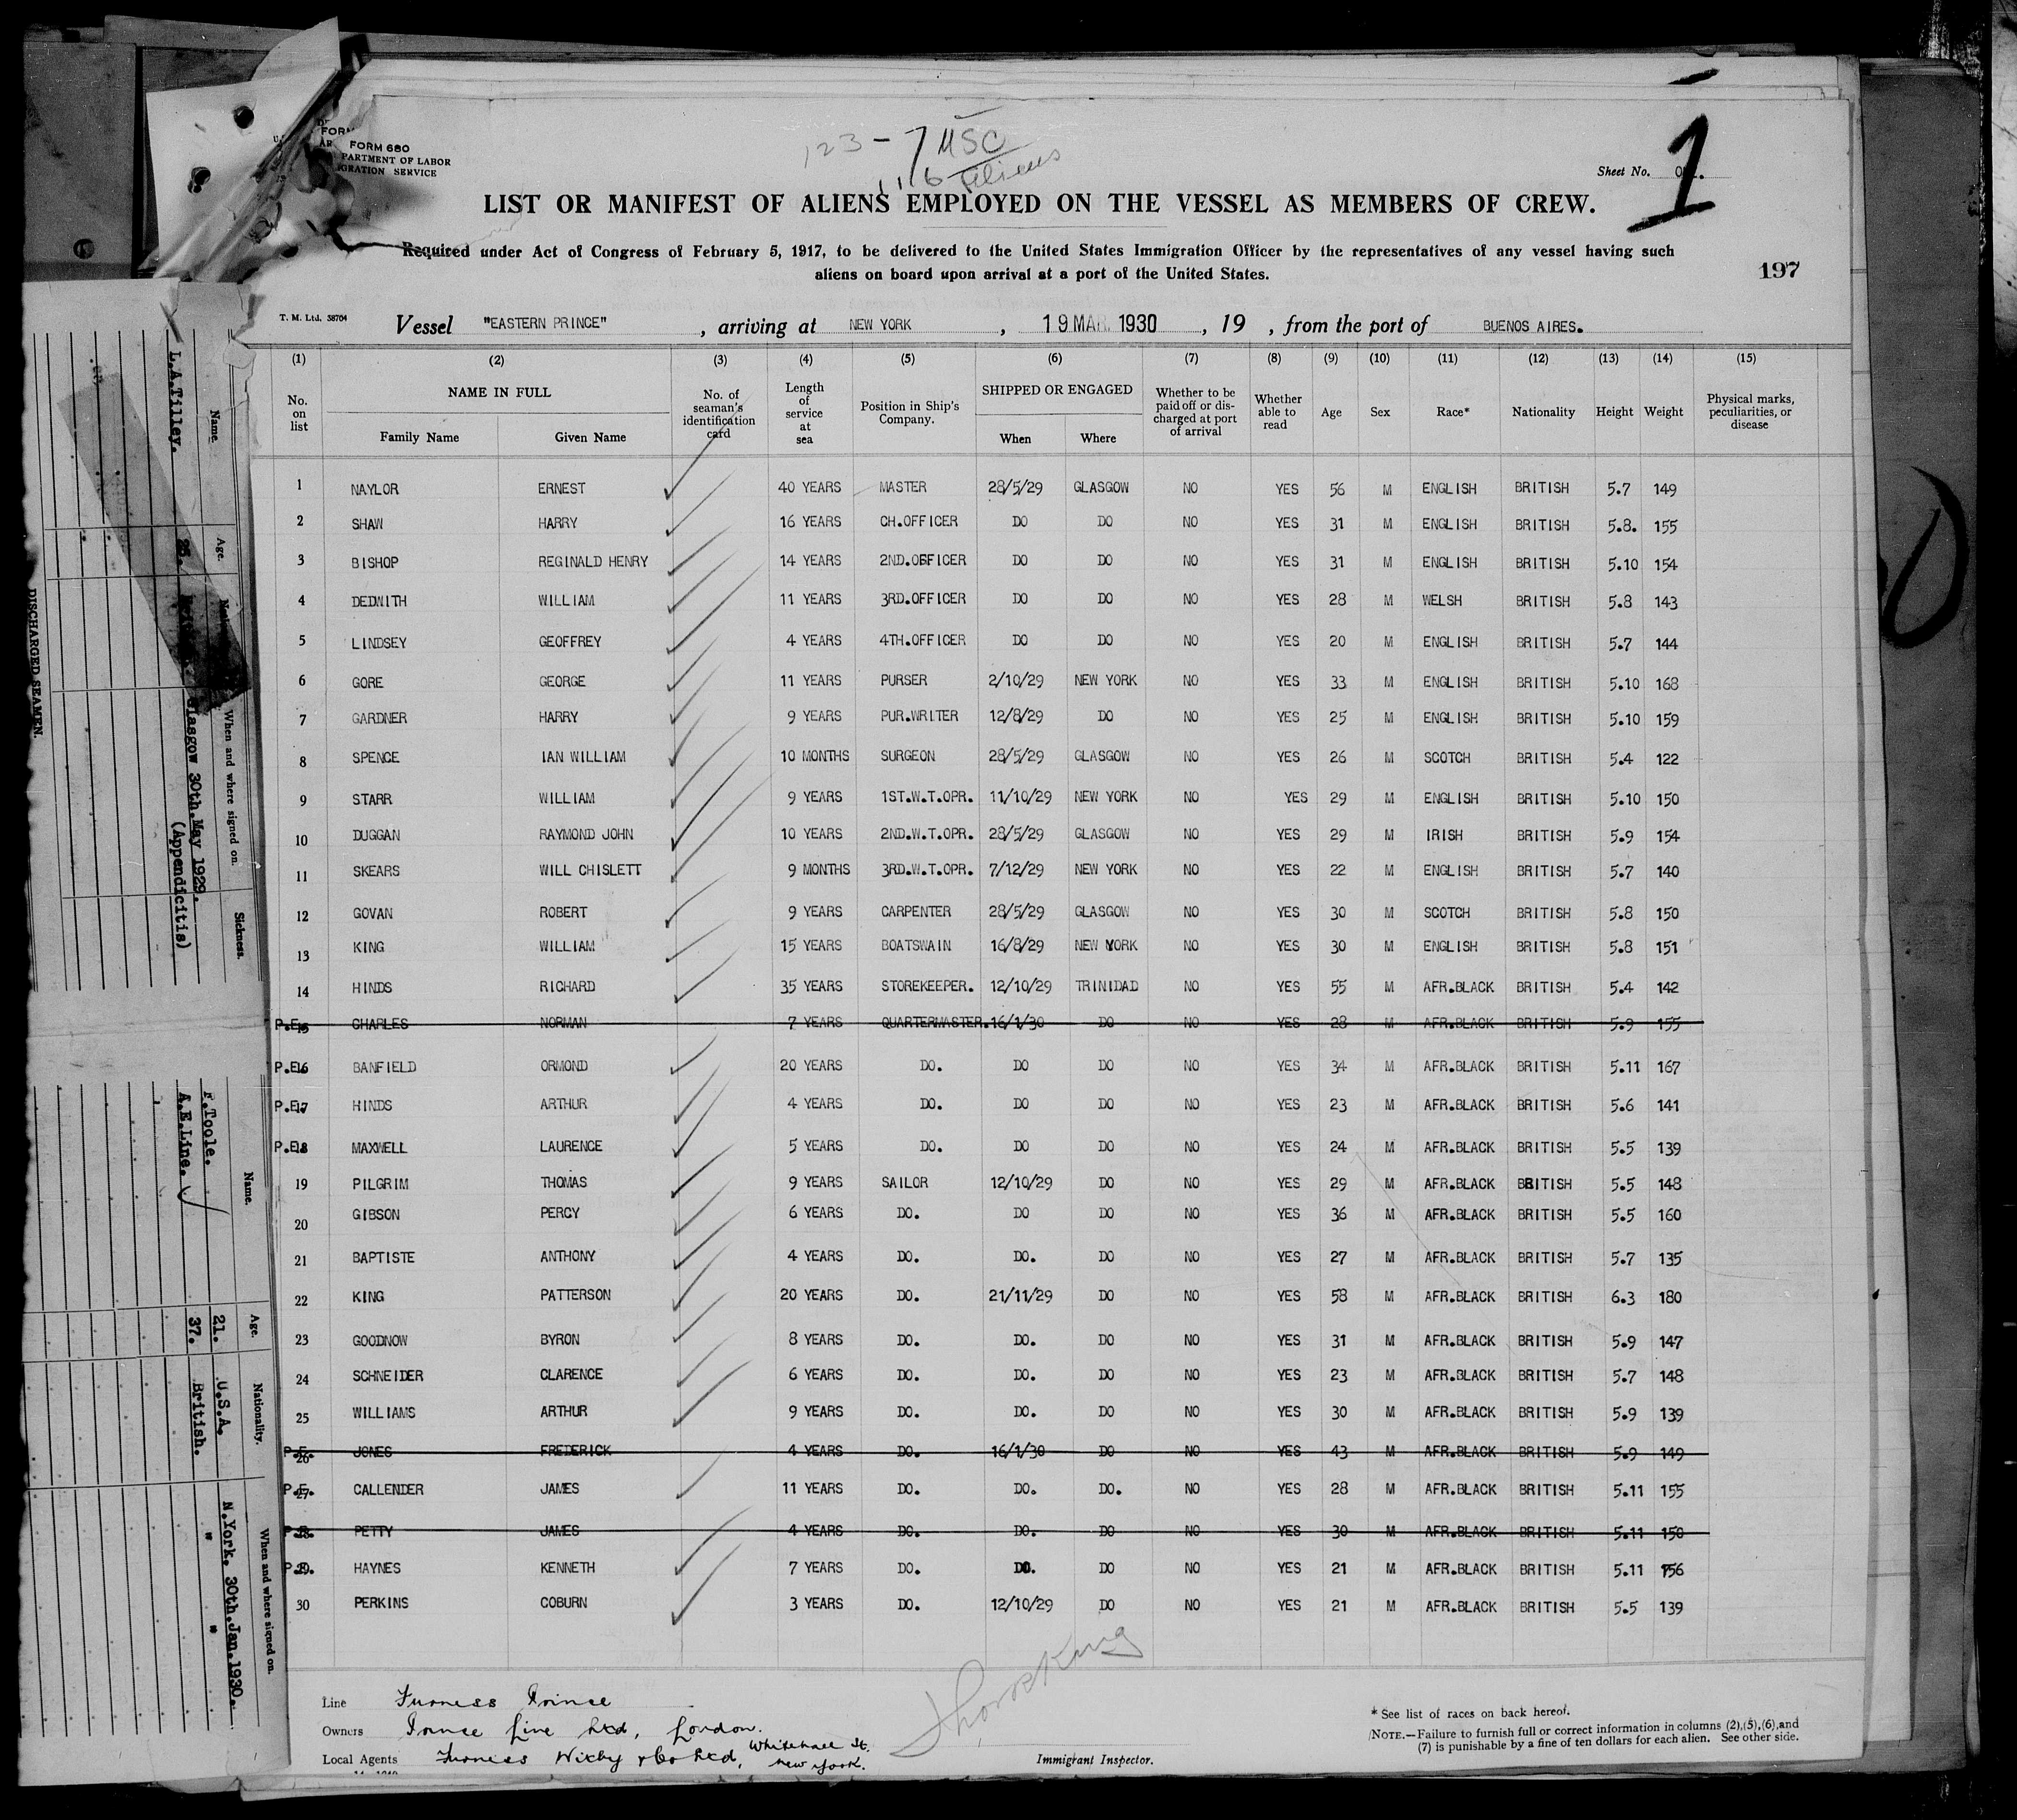 FORM 680
PARTMENT OF LABOR
IGRATION SERVICE
123 - 7 USC
116 Aliens
Sheet No.
1
LIST OR MANIFEST OF ALIENS EMPLOYED ON THE VESSEL AS MEMBERS OF CREW.
Required under Act of Congress of February 5, 1917, to be delivered to the United States Immigration Officer by the representatives of any vessel having such
aliens on board upon arrival at a port of the United States.
197
T. M. Ltd. 38704
Vessel "EASTERN PRINCE", arriving at NEW YORK, 19 MAR 1930, 19 , from the port of BUENOS AIRES.
(1) (2) (3) (4) (5) (6) (7) (8) (9) (10) (11) (12) (13) (14) (15)
No. on list NAME IN FULL Family Name Given Name No. of seaman's identification card Length of service at sea Position in Ship's Company. SHIPPED OR ENGAGED When Where Whether to be paid off or discharged at port of arrival Whether able to read Age Sex Race* Nationality Height Weight Physical marks, peculiarities, or disease
1 NAYLOR ERNEST 40 YEARS MASTER 28/5/29 GLASGOW NO YES 56 M ENGLISH BRITISH 5.7 149
2 SHAW HARRY 16 YEARS CH.OFFICER DO DO NO YES 31 M ENGLISH BRITISH 5.8. 155
3 BISHOP REGINALD HENRY 14 YEARS 2ND.OFFICER DO DO NO YES 31 M ENGLISH BRITISH 5.10 154
4 DEDWITH WILLIAM 11 YEARS 3RD.OFFICER DO DO NO YES 28 M WELSH BRITISH 5.8 143
5 LINDSEY GEOFFREY 4 YEARS 4TH.OFFICER DO DO NO YES 20 M ENGLISH BRITISH 5.7 144
6 GORE GEORGE 11 YEARS PURSER 2/10/29 NEW YORK NO YES 33 M ENGLISH BRITISH 5.10 168
7 GARDNER HARRY 9 YEARS PUR.WRITER 12/8/29 DO NO YES 25 M ENGLISH BRITISH 5.10 159
8 SPENCE IAN WILLIAM 10 MONTHS SURGEON 28/5/29 GLASGOW NO YES 26 M SCOTCH BRITISH 5.4 122
9 STARR WILLIAM 9 YEARS 1ST.W.T.OPR. 11/10/29 NEW YORK NO YES 29 M ENGLISH BRITISH 5.10 150
10 DUGGAN RAYMOND JOHN 10 YEARS 2ND.W.T.OPR. 28/5/29 GLASGOW NO YES 29 M IRISH BRITISH 5.9 154
11 SKEARS WILL CHISLETT 9 MONTHS 3RD.W.T.OPR. 7/12/29 NEW YORK NO YES 22 M ENGLISH BRITISH 5.7 140
12 GOVAN ROBERT 9 YEARS CARPENTER 28/5/29 GLASGOW NO YES 30 M SCOTCH BRITISH 5.8 150
13 KING WILLIAM 15 YEARS BOATSWAIN 16/8/29 NEW YORK NO YES 30 M ENGLISH BRITISH 5.8 151
14 HINDS RICHARD 35 YEARS STOREKEEPER. 12/10/29 TRINIDAD NO YES 55 M AFR.BLACK BRITISH 5.4 142
P.E. 15 CHARLES NORMAN 7 YEARS QUARTERMASTER. 16/1/30 DO NO YES 28 M AFR.BLACK BRITISH 5.9 155
P.E. 16 BANFIELD ORMOND 20 YEARS DO. DO DO NO YES 34 M AFR.BLACK BRITISH 5.11 167
P.E. 17 HINDS ARTHUR 4 YEARS DO. DO DO NO YES 23 M AFR.BLACK BRITISH 5.6 141
P.E. 18 MAXWELL LAURENCE 5 YEARS DO. DO DO NO YES 24 M AFR.BLACK BRITISH 5.5 139
19 PILGRIM THOMAS 9 YEARS SAILOR 12/10/29 DO NO YES 29 M AFR.BLACK BRITISH 5.5 148
20 GIBSON PERCY 6 YEARS DO. DO DO NO YES 36 M AFR.BLACK BRITISH 5.5 160
21 BAPTISTE ANTHONY 4 YEARS DO. DO. DO NO YES 27 M AFR.BLACK BRITISH 5.7 135
22 KING PATTERSON 20 YEARS DO. 21/11/29 DO NO YES 58 M AFR.BLACK BRITISH 6.3 180
23 GOODNOW BYRON 8 YEARS DO. DO. DO NO YES 31 M AFR.BLACK BRITISH 5.9 147
24 SCHNEIDER CLARENCE 6 YEARS DO. DO. DO NO YES 23 M AFR.BLACK BRITISH 5.7 148
25 WILLIAMS ARTHUR 9 YEARS DO. DO. DO NO YES 30 M AFR.BLACK BRITISH 5.9 139
P.E. 26 JONES FREDERICK 4 YEARS DO. 16/1/30 DO NO YES 43 M AFR.BLACK BRITISH 5.9 149
P.E. 27 CALLENDER JAMES 11 YEARS DO. DO. DO. NO YES 28 M AFR.BLACK BRITISH 5.11 155
P.E. 28 PETTY JAMES 4 YEARS DO. DO. DO NO YES 30 M AFR.BLACK BRITISH 5.11 150
P.E. 29 HAYNES KENNETH 7 YEARS DO. DO. DO NO YES 21 M AFR.BLACK BRITISH 5.11 156
30 PERKINS COBURN 3 YEARS DO. 12/10/29 DO NO YES 21 M AFR.BLACK BRITISH 5.5 139
Line Furness Prince
Owners Prince Line Ltd, London.
Local Agents Furness Withy & Co Ltd, Whitehall St. New York.
Immigrant Inspector.
* See list of races on back hereof.
NOTE.—Failure to furnish full or correct information in columns (2),(5),(6),and
(7) is punishable by a fine of ten dollars for each alien. See other side.
DISCHARGED SEAMEN.
Name. Age. When and where signed on. Sickness.
L.A.Tilley. 25. Glasgow 30th.May 1929. (Appendicitis)
Name. Age. Nationality. When and where signed on.
F.Toole. 21. U.S.A. N.York. 30th.Jan.1930.
A.E.Line. 37. British. " "